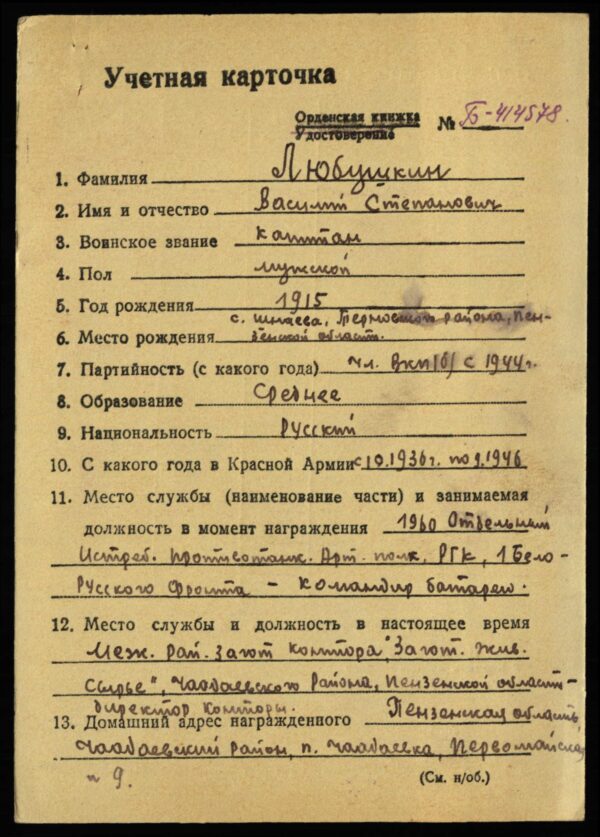 Учетная карточка
Орденская книжка
Удостоверение № Б-414578.
1. Фамилия Любушкин
2. Имя и отчество Василий Степанович
3. Воинское звание капитан
4. Пол мужской
5. Год рождения 1915
с. Шнаева, Терновского района, Пен-
6. Место рождения зенской области.
7. Партийность (с какого года) чл. ВКП/б/ с 1944г.
8. Образование Среднее
9. Национальность Русский
10. С какого года в Красной Армии с 10.1936г. по 9.1946
11. Место службы (наименование части) и занимаемая
должность в момент награждения 1960 Отдельный
Истреб. противотанк. Арт. полк, РГК, 1 Бело-
Русского Фронта – командир батареи.
12. Место службы и должность в настоящее время
Меж. рай. загот контора "Загот. жив.
Сырье", Чаадаевского района, Пензенской област-
директор конторы.
13. Домашний адрес награжденного Пензенская область
Чаадаевский район, п. Чаадаевка, Первомайская
9.
(См. н/об.)